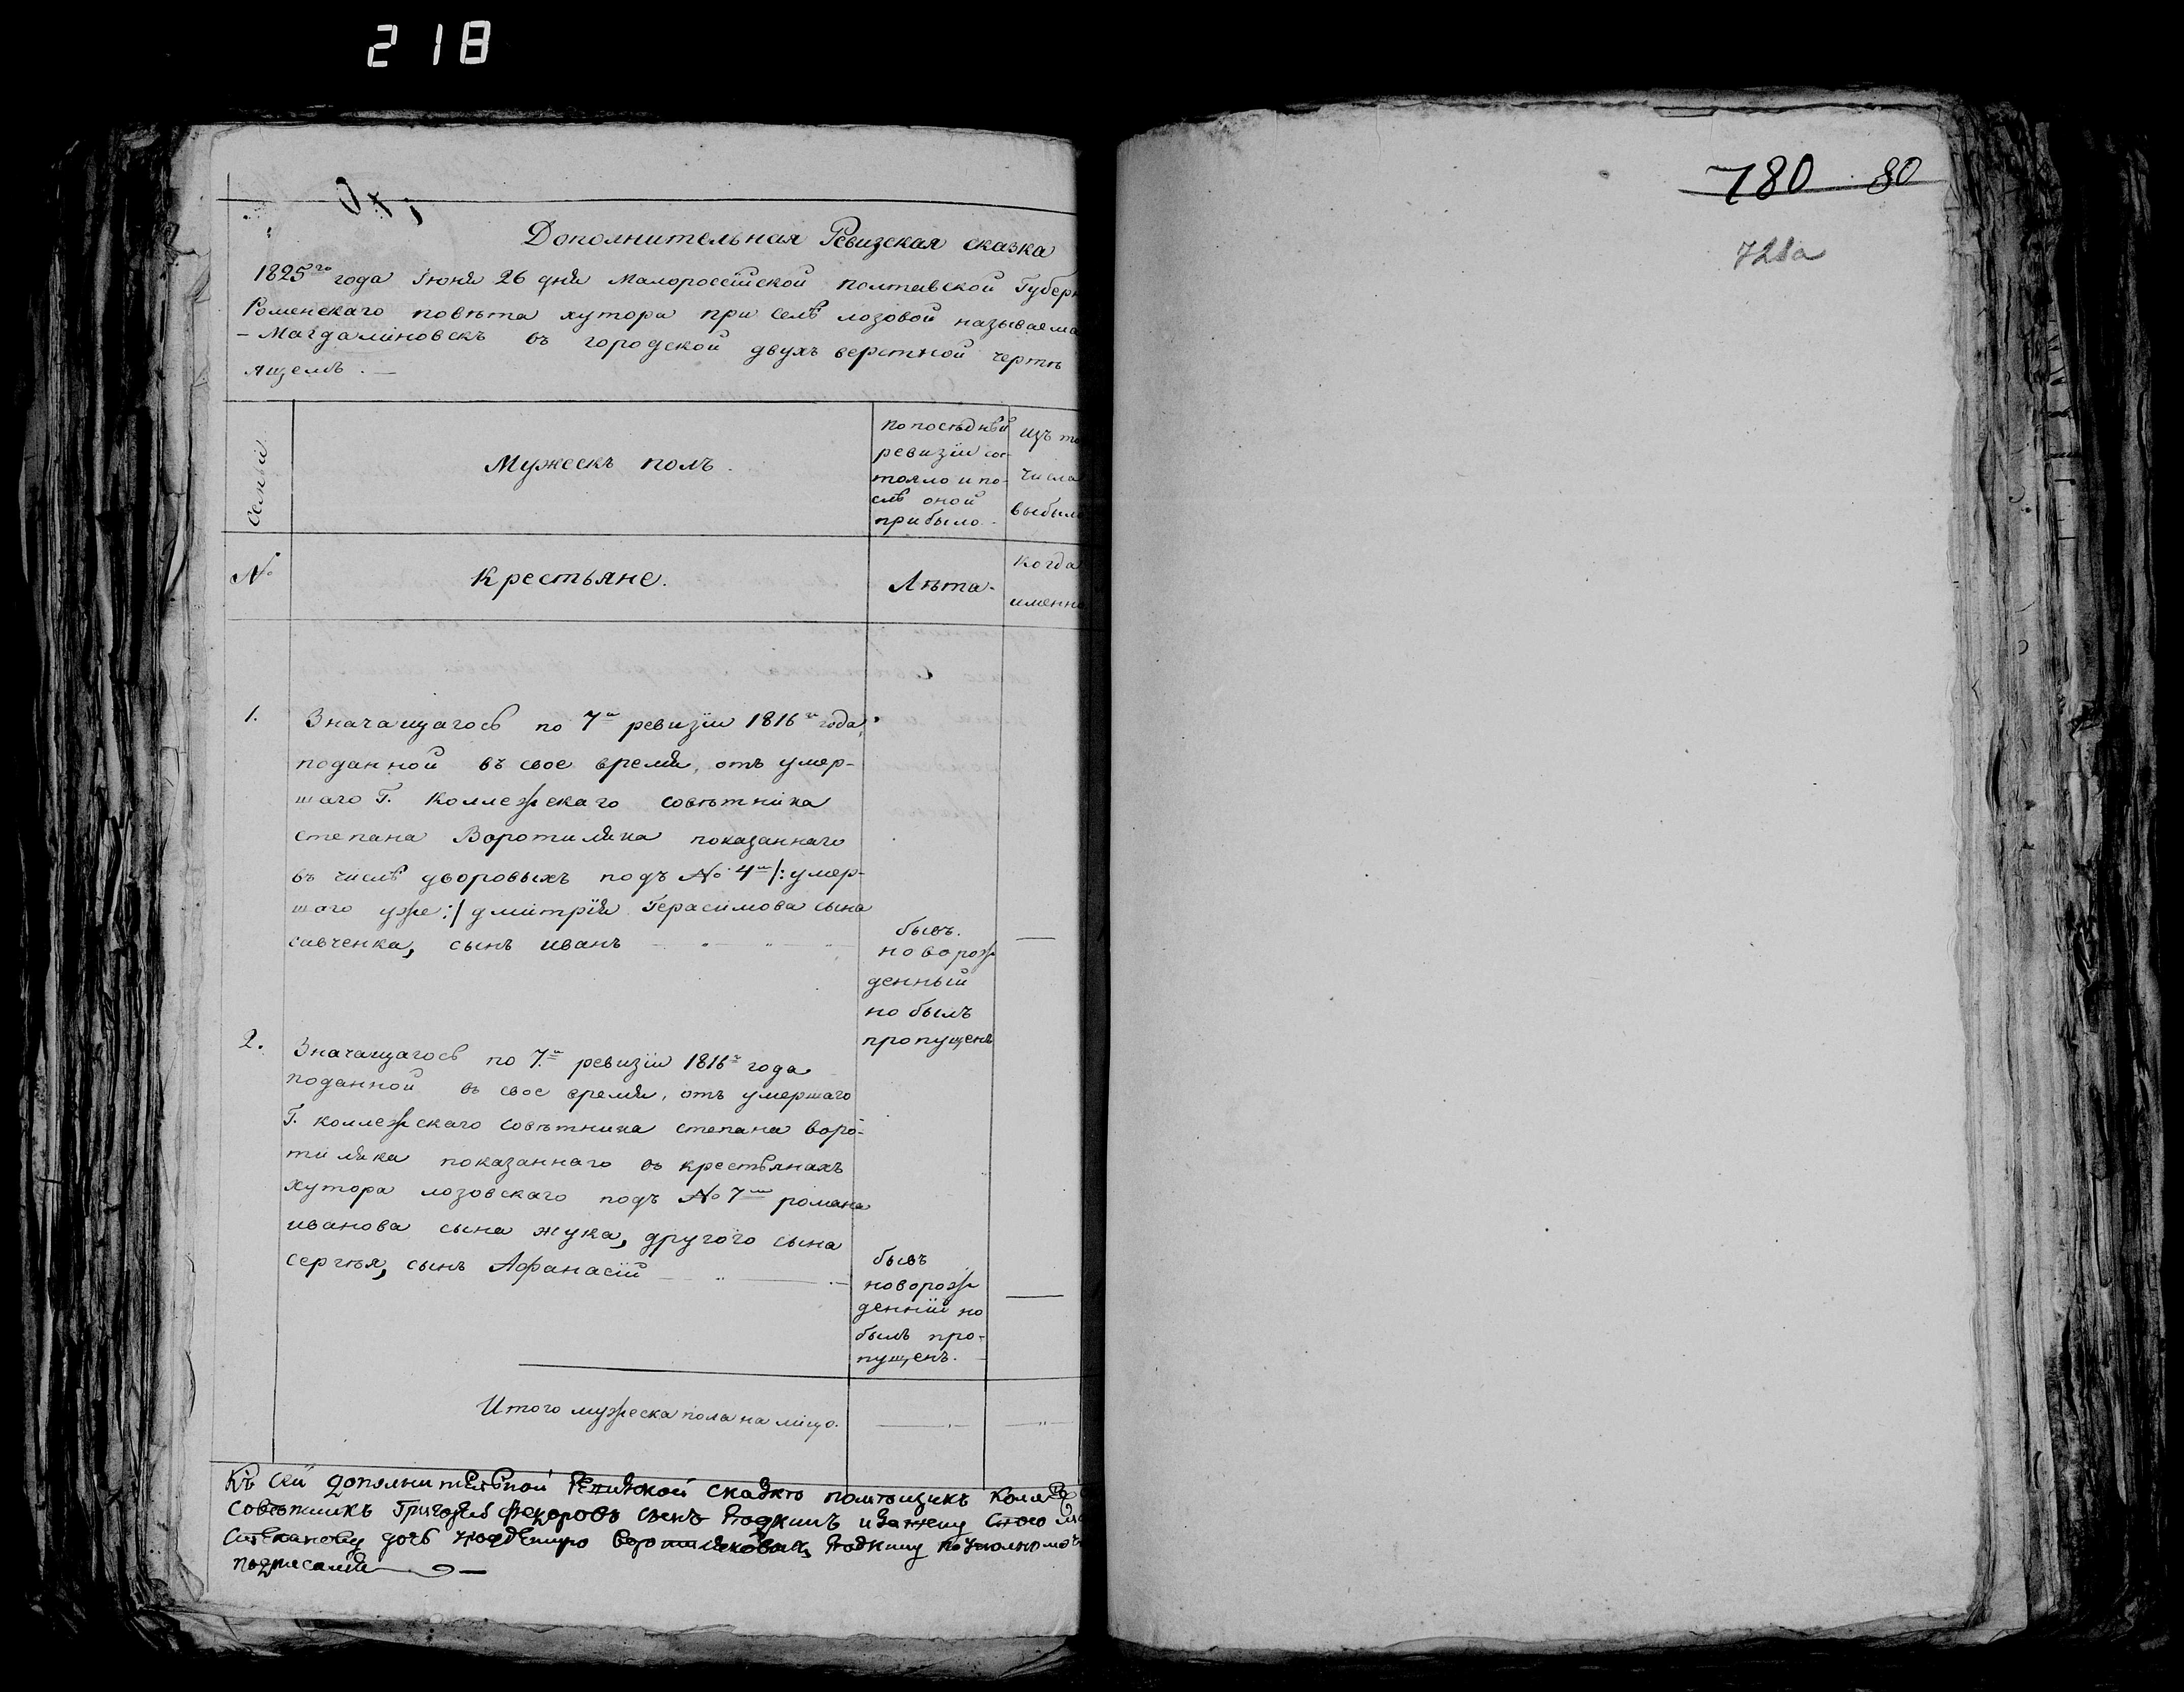 218
Дополнительная Ревизская сказка
1825го года Іюня 26 дня Малороссійской полтавской Губерн
Роменскаго повѣта хутора при селѣ лозовой называема
- Магдалиновскъ въ городской двухъ верстной чертѣ
Семьи
Мужескъ полъ.
по послѣдній
ревизіи сос-
тояло и по-
слѣ оной
прибыло.
изъ то
числа
выбыло
№
Крестьяне.
Лѣта.
когда
именно
1. Значащагось по 7й ревизіи 1816го года,
поданной въ свое время, отъ умер-
шаго Г. Коллежскаго совѣтника
степана Воротиляка показаннаго
въ числѣ дворовыхъ подъ № 4м /: умер-
шаго уже :/ дмитрія Герасимова сына
савченка, сынъ иванъ
бывъ.
новорож
денный
но былъ
пропущенъ
2. Значащагось по 7й ревизіи 1816го года
поданной въ свое время, отъ умершаго
Г. коллежскаго совѣтника степана воро-
тиляка показаннаго въ крестьянахъ
хутора лозовскаго подъ № 7м романа
иванова сына жука, другого сына
сергѣя, сынъ Афанасій
бывъ
новорож
денній но
былъ про-
пущенъ.
Итого мужеска пола на лицо.
Къ сей дополнительной Ревизкой сказкѣ помѣщикъ Колеж
совѣтникъ Григорій Федоровъ сынъ и
дочь
подписался
780 80
721а